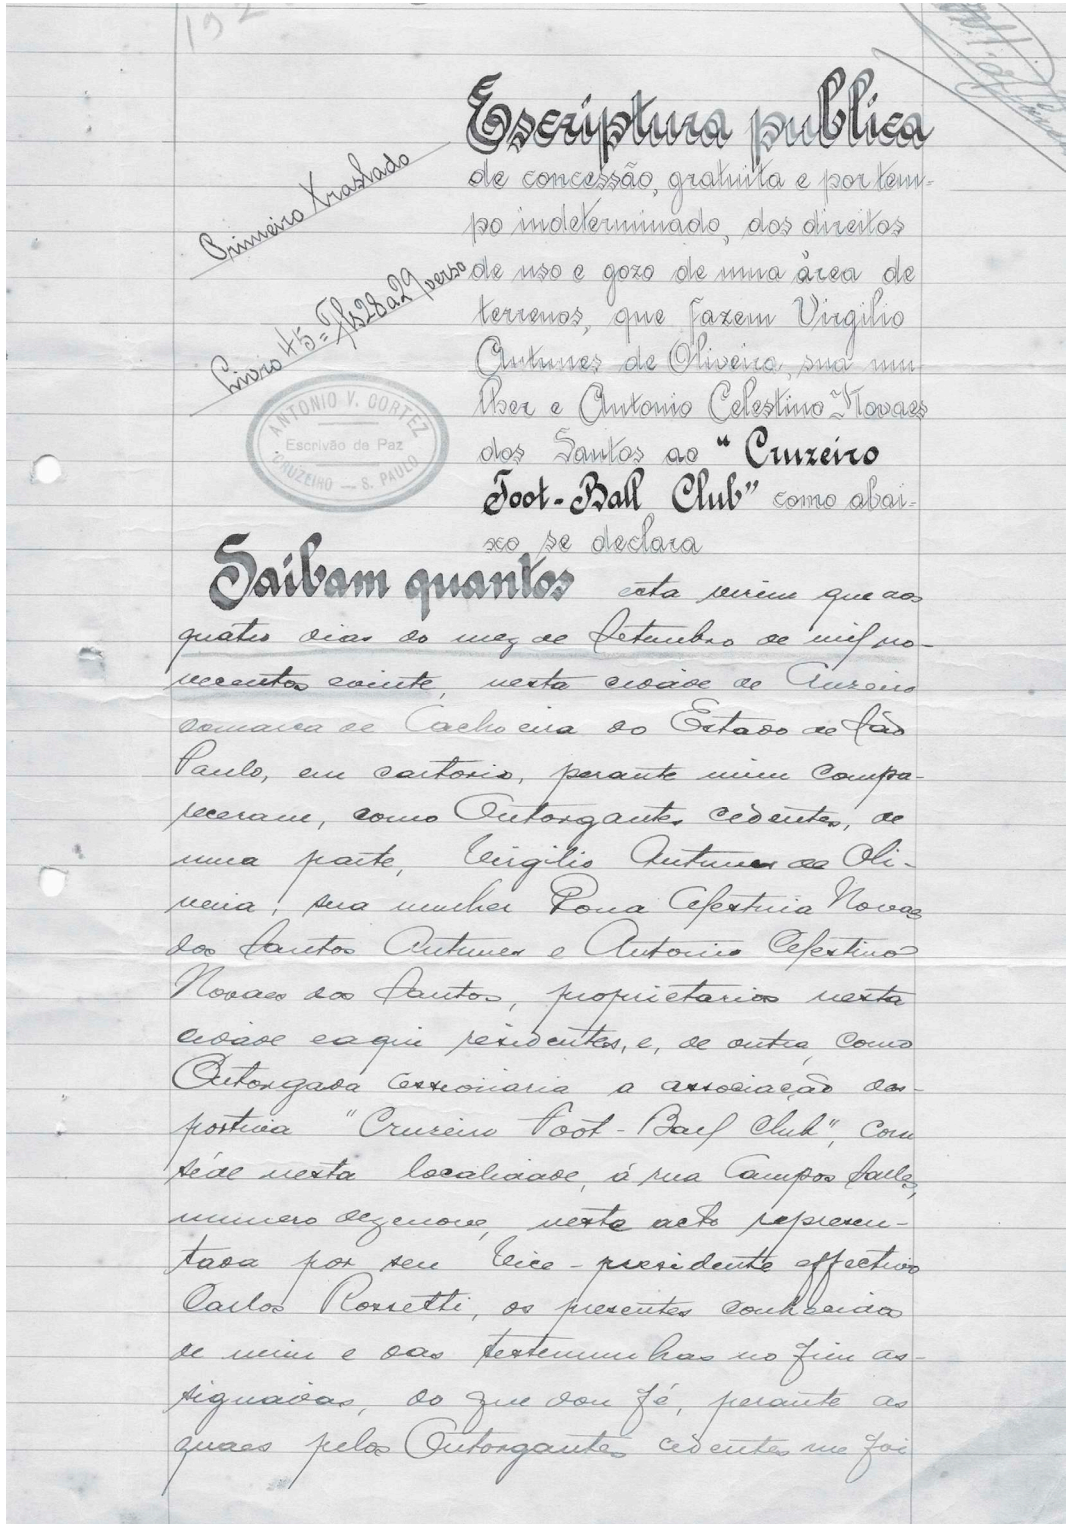 192
Primeiro Traslado
Livro 45=Fls 28 a 29 verso
ANTONIO V. CORTEZ
Escrivão de Paz
CRUZEIRO — S. PAULO
Escriptura publica
de concessão, gratuita e por tem-
po indeterminado, dos direitos
de uso e gozo de uma área de
terrenos, que fazem Virgilio
Antunes de Oliveira, sua mu-
lher e Antonio Celestino Novaes
dos Santos ao "Cruzeiro
Foot-Ball Club" como abai-
xo se declara
Saibam quantos esta virem que aos
quatro dias do mez de Setembro de mil no-
vecentos evinte, nesta cidade de Cruzeiro
comarca de Cachoeira do Estado de São
Paulo, em cartorio, perante mim compa-
receram, como Outorgantes cedentes, de
uma parte, Virgilio Antunes de Oli-
veira, sua mulher Dona Celestina Novaes
dos Santos Antunes e Antonio Celestino
Novaes dos Santos, proprietarios nesta
cidade eaqui residentes, e, de outra, como
Outorgada cessionaria a associação des-
portiva "Cruzeiro Foot-Ball Club", com
séde nesta localidade, á rua Campos Salles,
numero dezenove, neste acto represen-
tada por seu Vice-presidente effectivo
Carlos Rossetti, os presentes conhecidos
de mim e das testemunhas no fim as-
signadas, do que dou fé, perante as
quaes pelos Outorgantes cedentes me foi